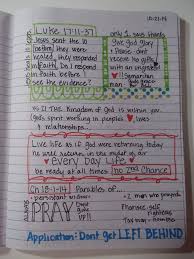 10-21-14
Luke 17:11-37
Jesus sent the 10
before they were
healed, they responded
in Faith.
in Faith before I
see the evidence?
only 1 gave thanks
Give God glory
Please don't
receive his gifts
with an ungrateful
Samaritan
vs 21 The Kingdom of God is within you
God's spirit working in people's lives
& relationships...
Live life as if God were returning today
he will return, in the midst of our
every day life
be ready at all times no 2nd chance
Ch 18:1-14 Parables of...
2 men who prayed
ALWAYS
PRAY
Pharisee self
righteous
Tax man - humble
Application: Don't get LEFT BEHIND